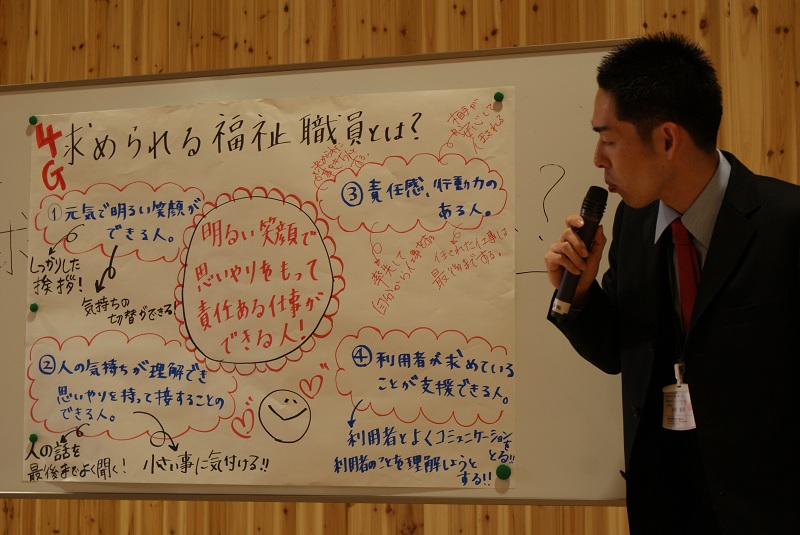 4G
求められる福祉職員とは?
①元気で明るい笑顔が
できる人。
しっかりした
挨拶!
気持ちの
切替ができる!
明るい笑顔で
思いやりをもって
責任ある仕事が
できる人!
③責任感、行動力の
ある人。
相手が
安心して
任される
率先して
自分から仕事を
任された仕事は
最後までする。
②人の気持ちが理解でき
思いやりを持って接することの
できる人。
人の話を
最後までよく聞く!
小さい事に気付ける!!
④利用者が求めている
ことが支援できる人。
利用者とよくコミュニケーションを
とる!!
利用者のことを理解しようと
する!!
?